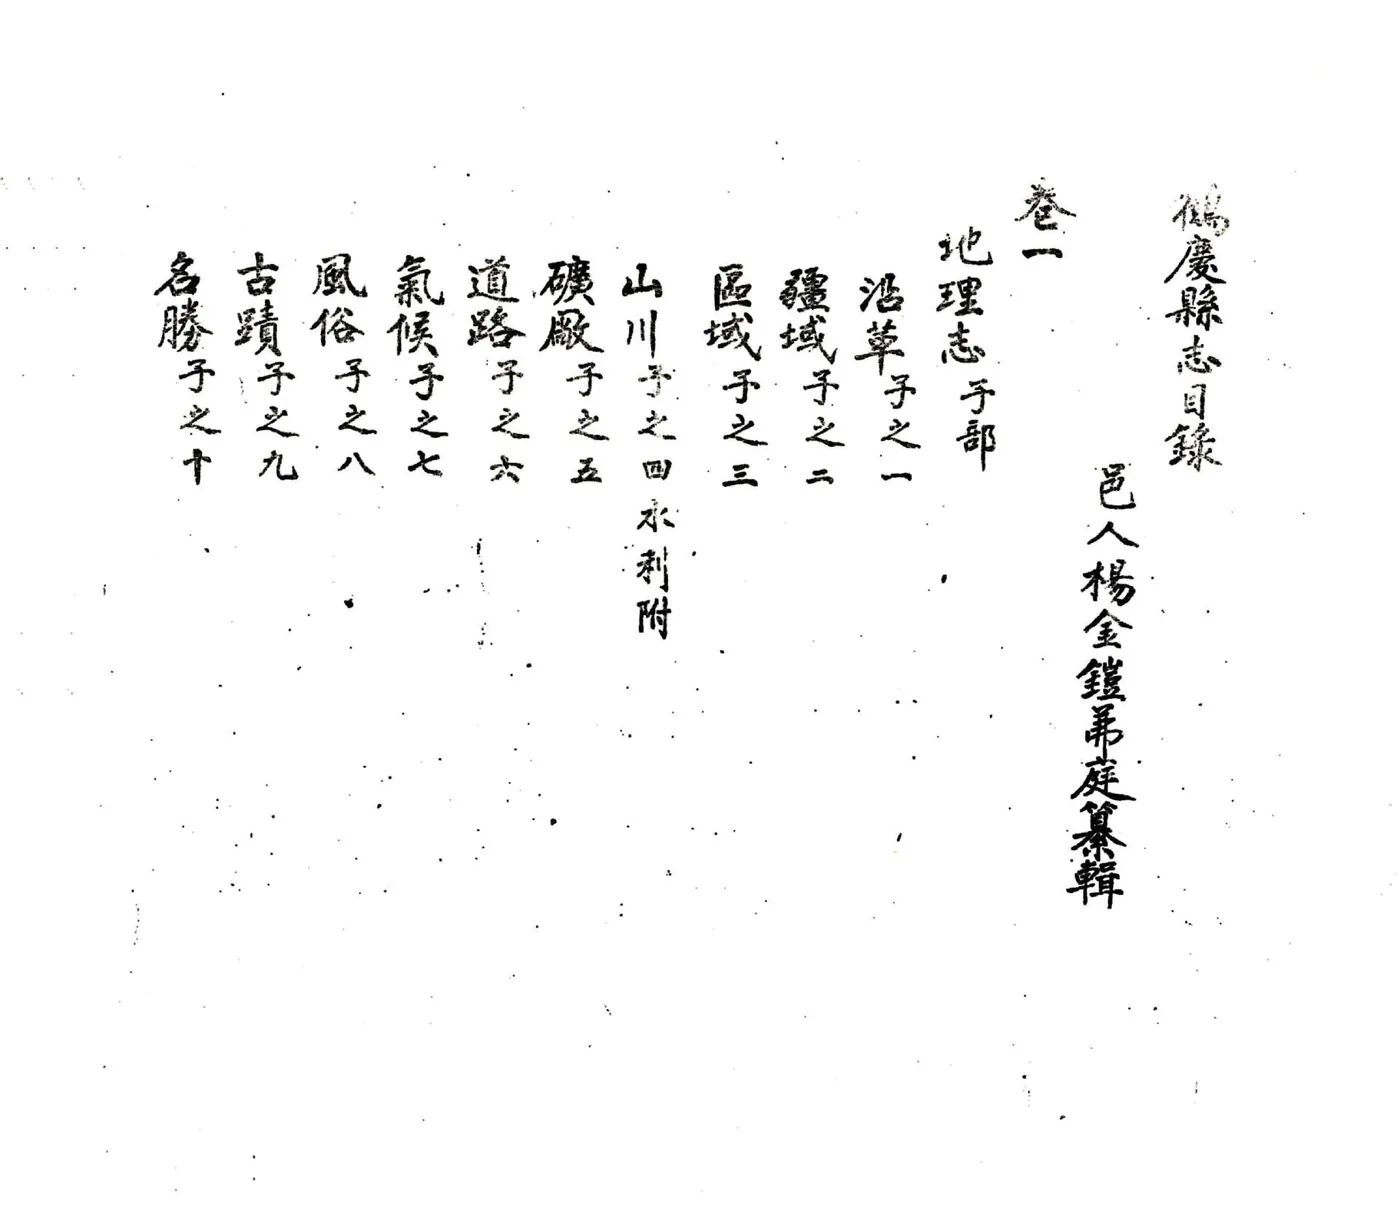 鶴慶縣志目錄
邑人楊金鎧苐庭纂輯
卷一
地理志子部
沿革子之一
疆域子之二
區域子之三
山川子之四水利附
礦厰子之五
道路子之六
氣候子之七
風俗子之八
古蹟子之九
名勝子之十